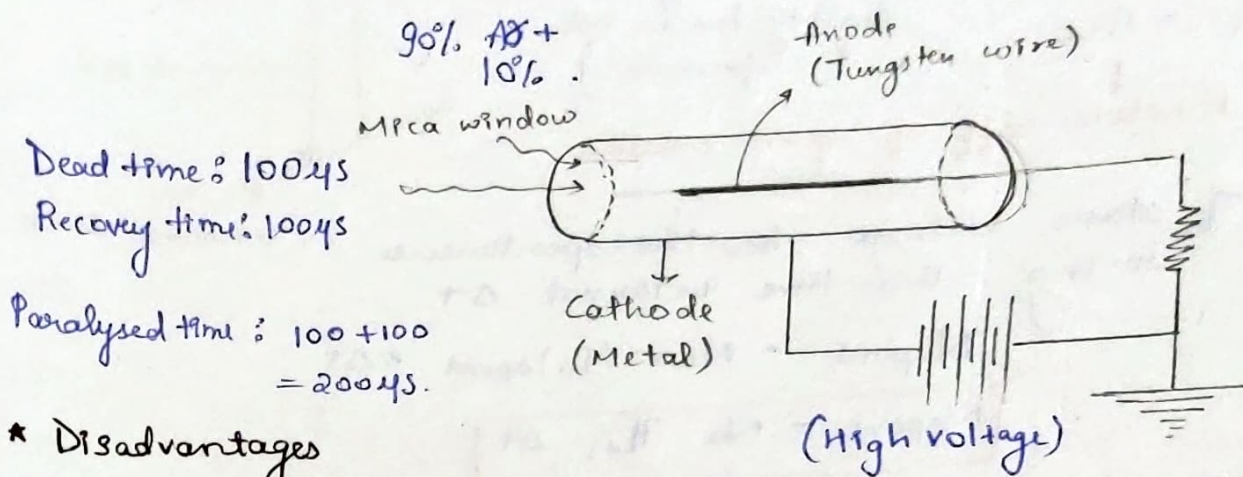 90% Ar +
10% .
Anode
(Tungsten wire)
Mica window
Dead time : 100 μs
Recovey time : 100 μs
Paralysed time : 100 + 100
= 200 μs.
Cathode
(Metal)
(High voltage)
* Disadvantages